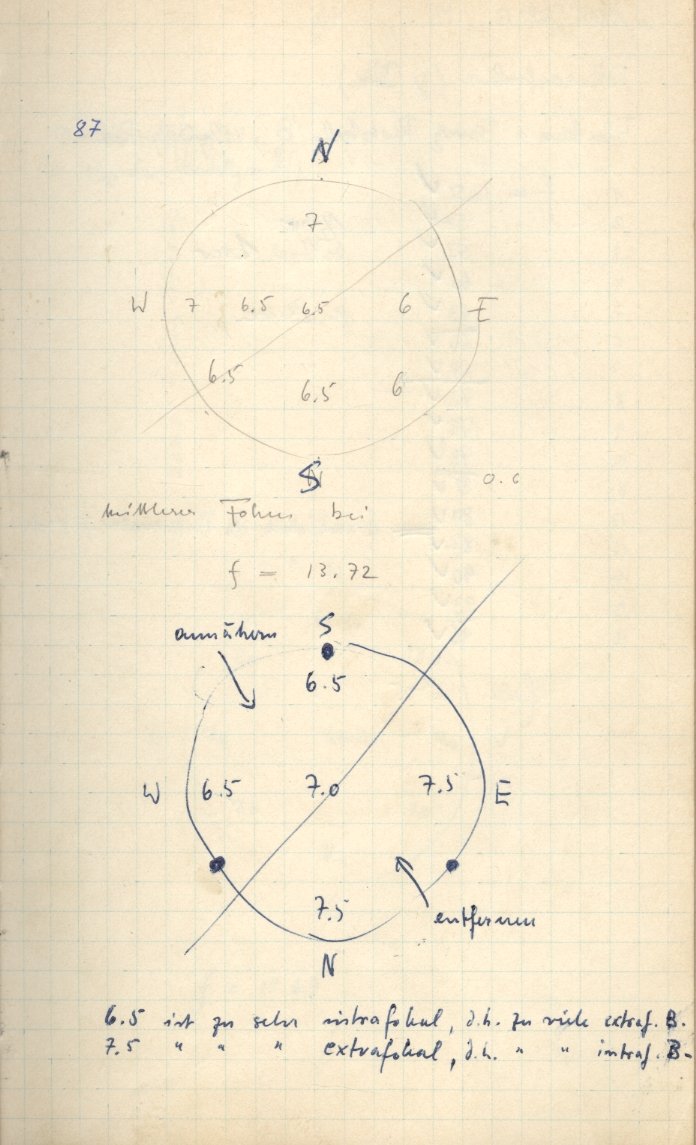 87
N
7
W 7 6.5 6.5 6 E
6.5 6.5 6
S
0.6
mittlerer Fokus bei
f = 13.72
annähern S
6.5
W 6.5 7.0 7.5 E
7.5
entfernen
N
6.5 ist zu sehr intrafokal, d.h. zu viele extraf. B.
7.5 " " " extrafokal, d.h. " " intraf. B.